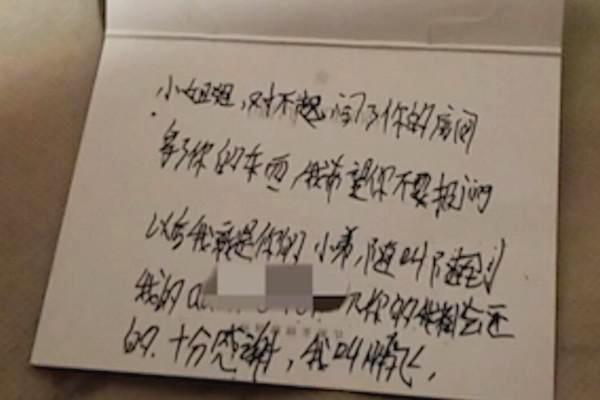 小姐姐,对不起闯了你的房间
拿了你的东西,我希望你不要报
以后我就是你的小弟,随叫随到
我的 你的 会还
的. 十分感谢,我叫